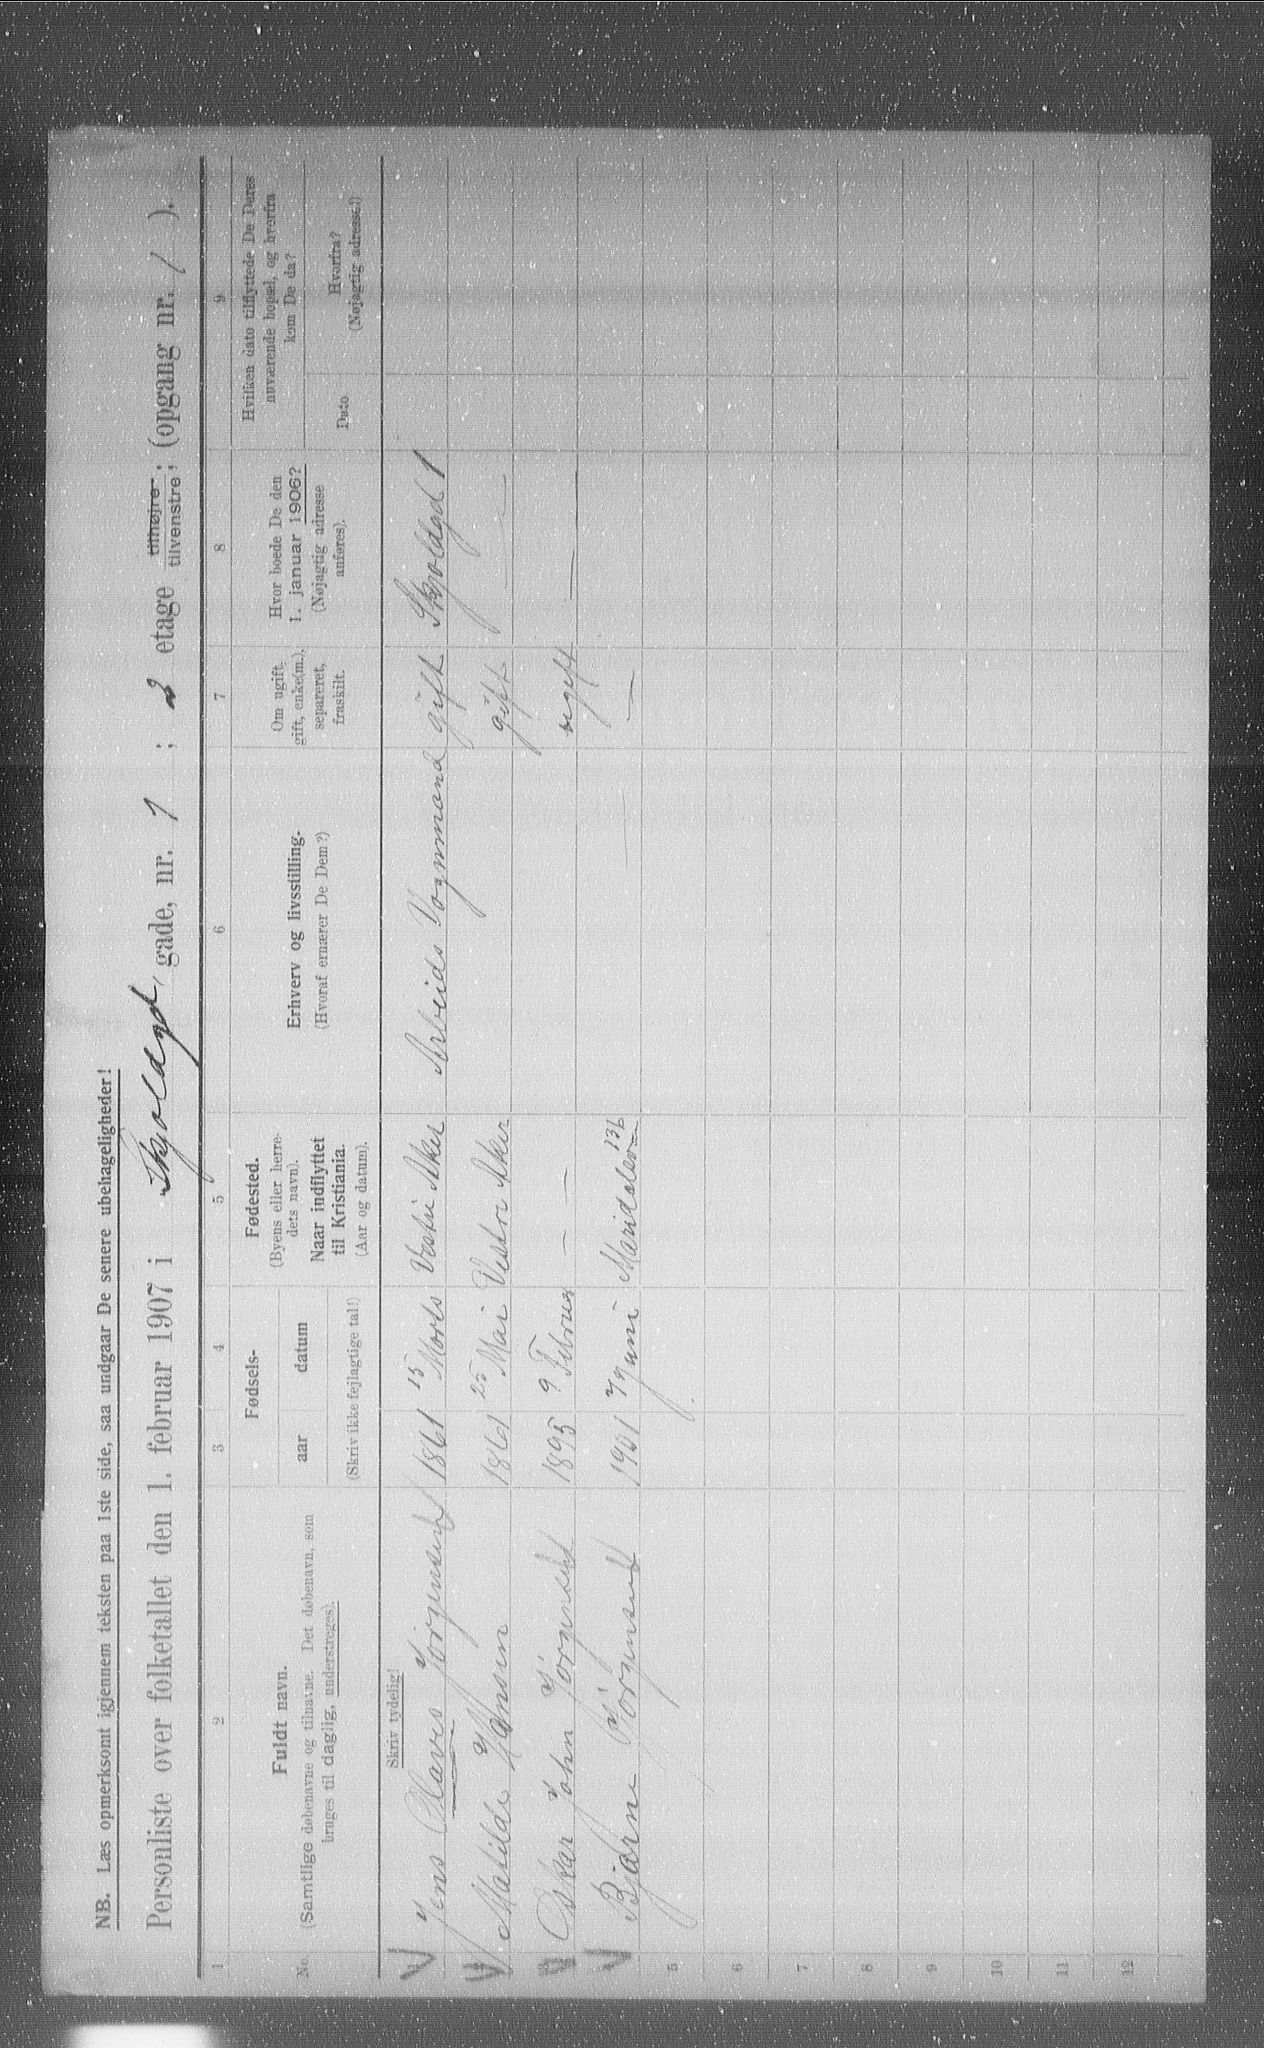 NB. Læs opmerksomt igjennem teksten paa 1ste side, saa undgaar De senere ubehageligheder!
Personliste over folketallet den 1. februar 1907 i Skjoldgd, gade, nr. 1 ; 2 etage tilhøjre; tilvenstre; (opgang nr. / ).
1 2 3 4 5 6 7 8 9
No.
Fuldt navn.
(Samtlige døbenavne og tilnavne. Det døbenavn, som
bruges til daglig, understreges).
Fødsels-
aar datum
(Skriv ikke fejlagtige tal!)
Fødested.
(Byens eller herre-
dets navn).
Naar indflyttet
til Kristiania.
(Aar og datum).
Erhverv og livsstilling.
(Hvoraf ernærer De Dem?)
Om ugift,
gift, enke(m.),
separeret,
fraskilt.
Hvor boede De den
1. januar 1906?
(Nøjagtig adresse
anføres).
Hvilken dato tilflyttede De Deres
nuværende bopæl, og hvorfra
kom De da?
Dato
Hvorfra?
(Nøjagtig adresse!)
Skriv tydelig!
1 Jens Olaves Jörgensen 1861 15 Marts Vestre Aker Arbeids Vognmand gift Skjoldgd 1
2 Matilde Hansen 1861 25 Mai Vestre Aker gift —
3 Oskar John Jörgensen 1895 9 Februar — — ugift — —
4 Bjarne Jörgensen 1901 7 Juni Maridalsvn 136 —
5
6
7
8
9
10
11
12